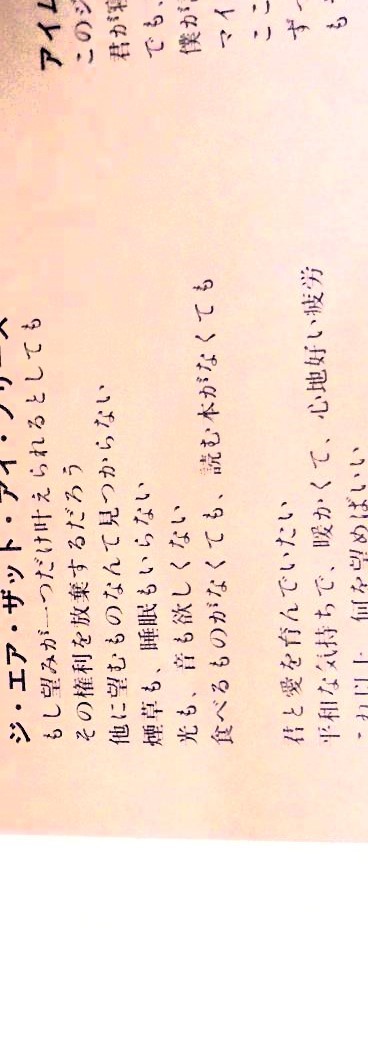 ジ・エア・ザット・アイ・ブリーズ
もし望みが一つだけ叶えられるとしても
その権利を放棄するだろう
他に望むものなんて見つからない
煙草も、睡眠もいらない
光も、音も欲しくない
食べるものがなくても、読む本がなくても
君と愛を育んでいたい
平和な気持ちで、暖かくて、心地好い疲労
これ以上、何を望めばいい
アイム
このジ
君が
でも、
僕が
マイ
ここ
ずっ
も